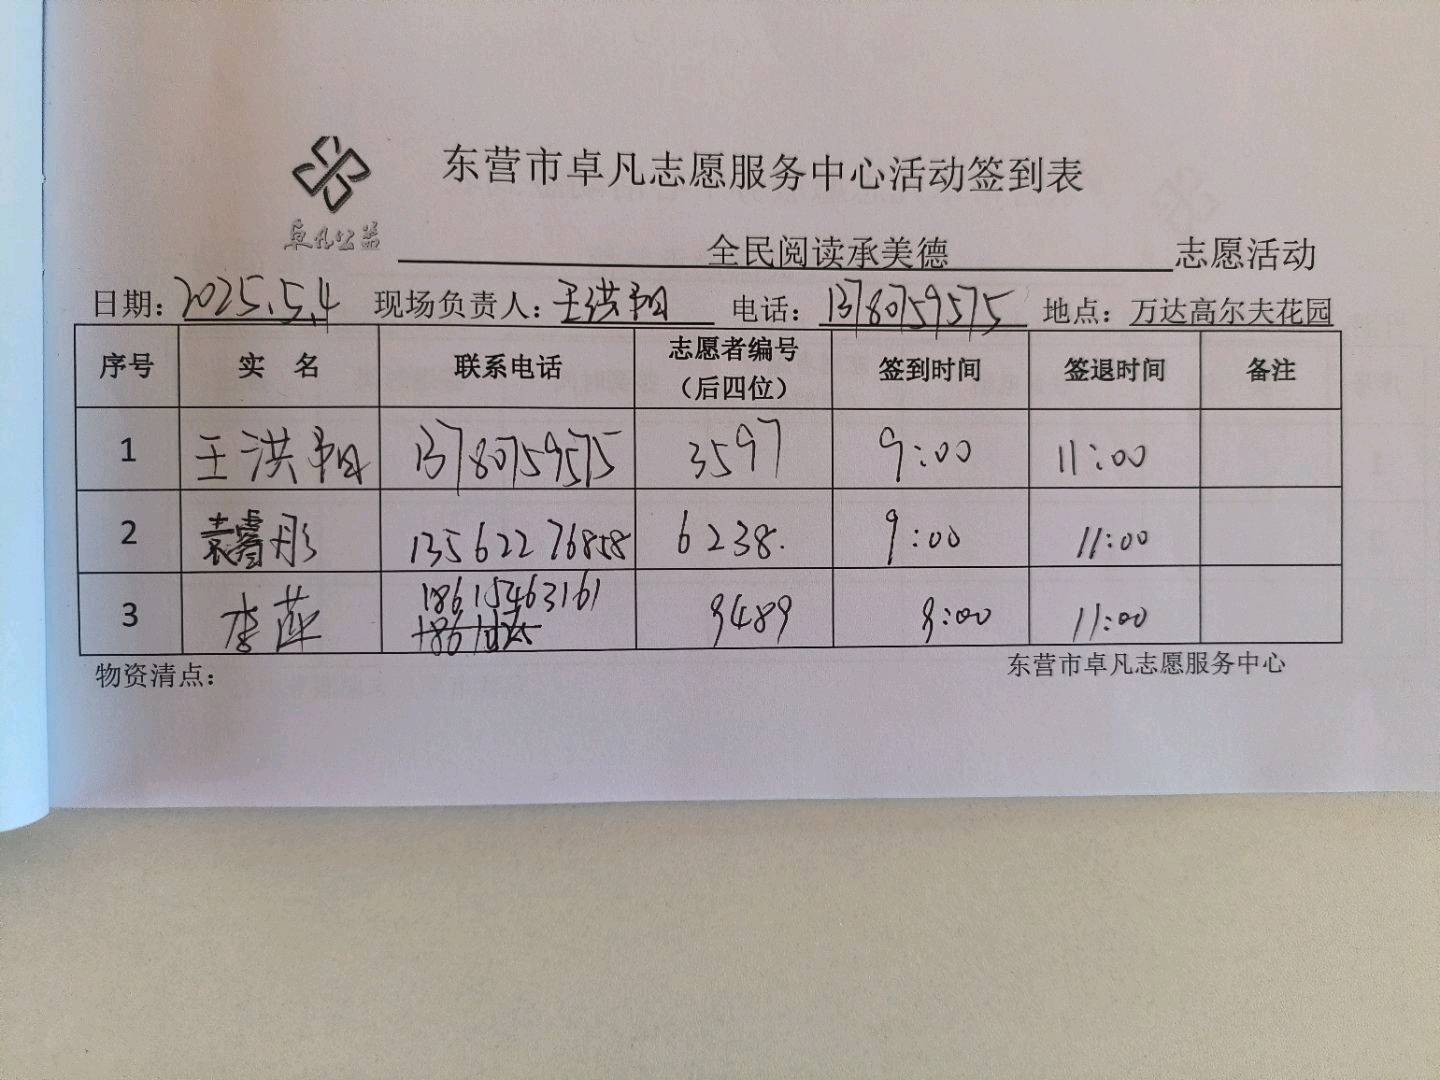 东营市卓凡志愿服务中心活动签到表
卓凡公益
全民阅读承美德 志愿活动
日期：2025.5.4 现场负责人：王洪翔 电话：13780759575 地点：万达高尔夫花园
序号 实 名 联系电话 志愿者编号（后四位） 签到时间 签退时间 备注
1 王洪翔 13780759575 3597 9:00 11:00
2 袁睿彤 13562276858 6238. 9:00 11:00
3 李萍 18615463161 9489 9:00 11:00
物资清点： 东营市卓凡志愿服务中心